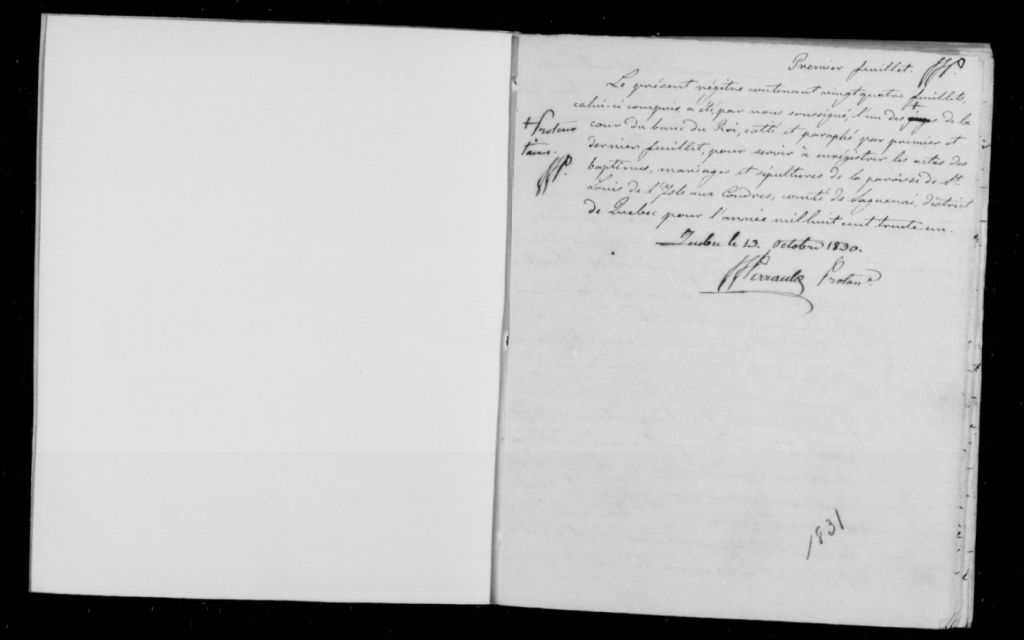 Premier feuillet.
Le présent régître contenant vingt quatre feuillets,
celui-ci compris a été, par nous soussigné, l'un des juges de la
+ Protono
taires.
cour du banc du Roi, cotté et paraphé par premier et
dernier feuillet, pour servir à enrégistrer les actes des
baptêmes, mariages et sépultures de la paroisse de St.
Louis de l'Isle aux Coudres, comté de Saguenai, district
de Quebec pour l'année mil huit cent trente-un.
Quebec le 13. Octobre 1830.
Perrault Protonre.
1831